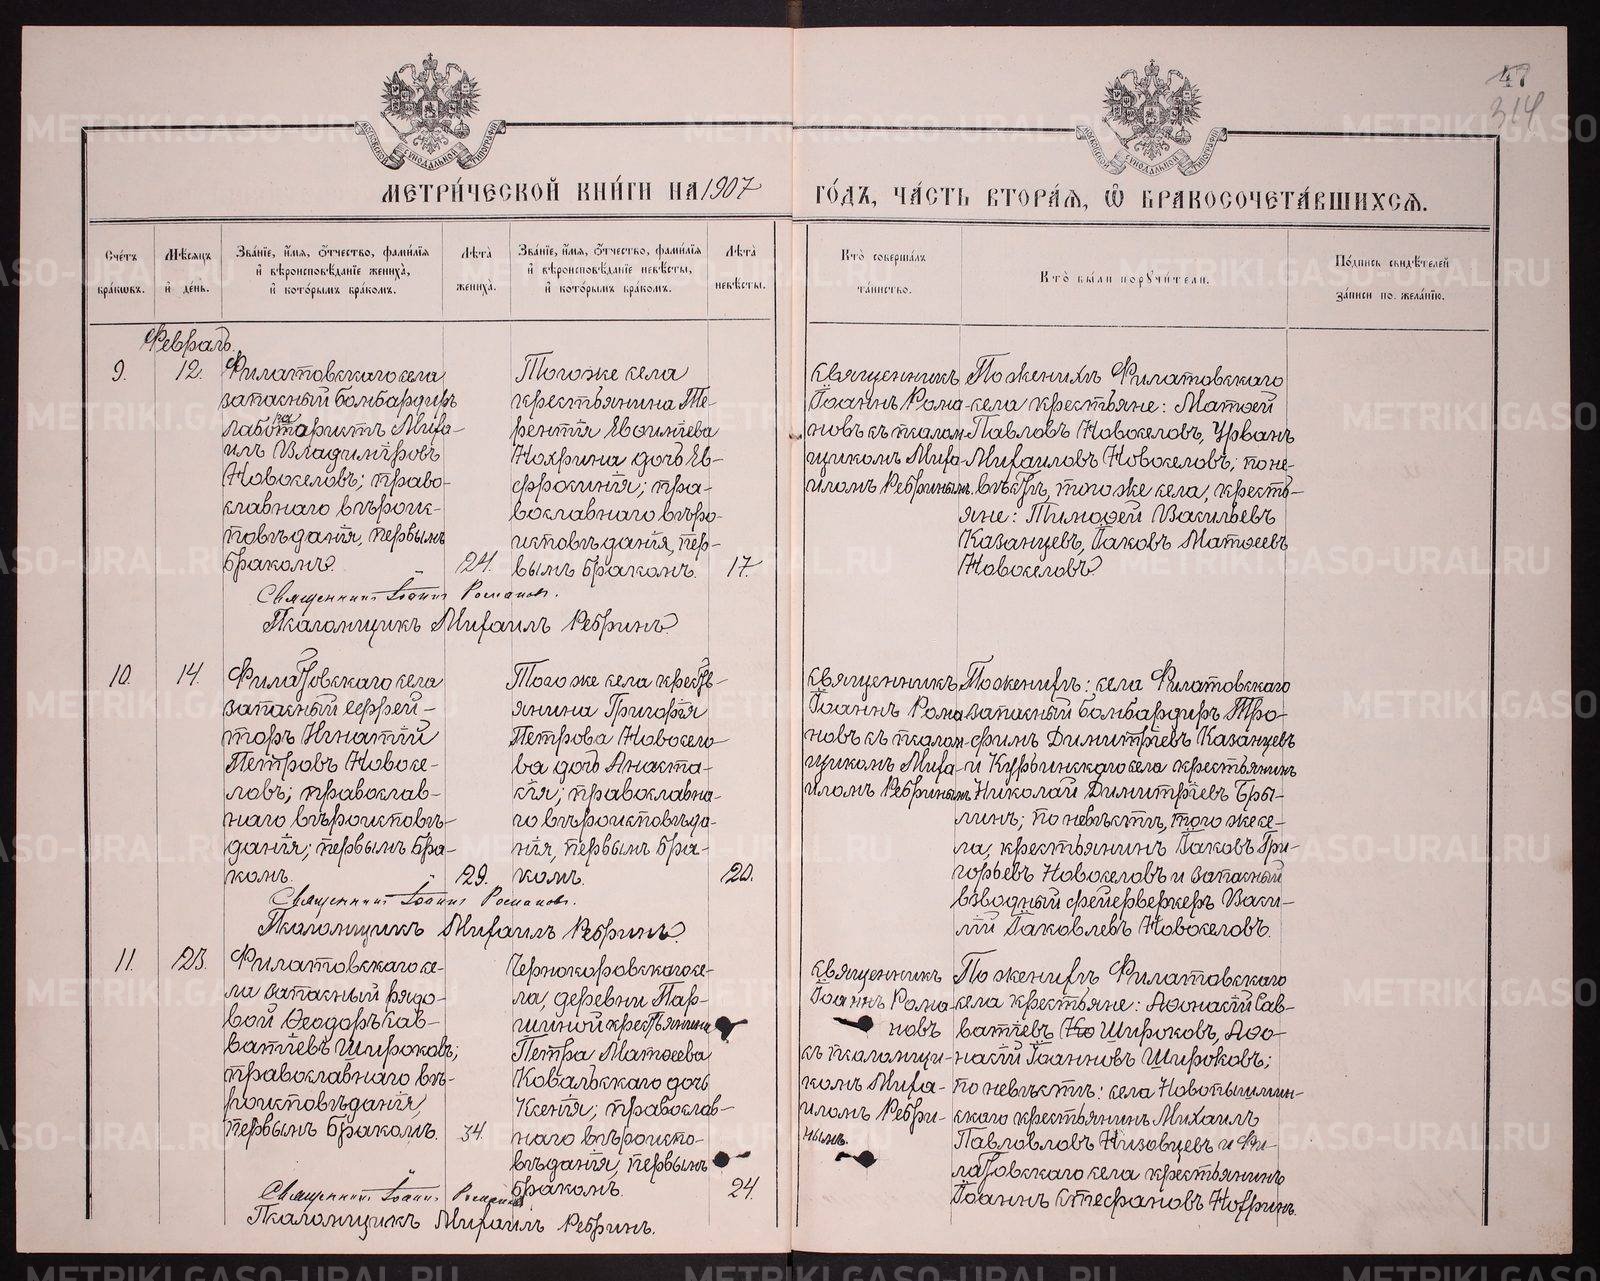 47
314
МОСКОВСКОЙ СѴНОДАЛЬНОЙ ТИПОГРАФІИ
МОСКОВСКОЙ СѴНОДАЛЬНОЙ ТИПОГРАФІИ
МЕТРИ́ЧЕСКОЙ КНИ́ГИ НА 1907 ГО́ДЪ, ЧА́СТЬ ВТОРА́Я, Ѡ҆ БРАКОСОЧЕТА́ВШИХСЯ.
Сче́тъ бра́ковъ.
Мѣ́сяцъ и҆ де́нь.
Зва́нїе, и҆́мя, ѻ҆́тчество, фами́лїя
и҆ вѣроисповѣ́данїе жениха̀,
и҆ кото́рымъ бра́комъ.
Лѣ́та жениха̀.
Зва́нїе, и҆́мя, ѻ҆́тчество, фами́лїя
и҆ вѣроисповѣ́данїе невѣ́сты,
и҆ кото́рымъ бра́комъ.
Лѣ́та невѣ́сты.
Кто̀ соверша́лъ та́инство.
Кто̀ бы́ли порꙋчи́тели.
По́дпись свидѣ́телей
за́писи по жела́нїю.
Февраль.
9.
12.
Филатовскаго села
запасный бомбардиръ
лаборатористъ Миха-
илъ Владиміровъ
Новоселовъ; право-
славнаго вѣроис-
повѣданія, первымъ
бракомъ.
24.
Тогоже села
крестьянина Те-
рентія Евѳиміева
Нохрина дочь Ев-
фросинія; пра-
вославнаго вѣро-
исповѣданія, пер-
вымъ бракомъ.
17.
Священникъ
Іоаннъ Рома-
новъ съ псалом-
щикомъ Миха-
иломъ Ребринымъ.
По женихѣ Филатовскаго
села крестьяне: Матѳей
Павловъ Новоселовъ, Урванъ
Михаиловъ Новоселовъ; по не-
вѣстѣ, того же села, кресть-
яне: Тимоѳей Васильевъ
Казанцевъ, Іаковъ Матѳеевъ
Новоселовъ.
Священникъ Іоаннъ Романовъ.
Псаломщикъ Михаилъ Ребринъ.
10.
14.
Филатовскаго села
запасный ефрей-
торъ Игнатій
Петровъ Новосе-
ловъ; православ-
наго вѣроисповѣ-
данія; первымъ бра-
комъ.
29.
Того же села кресть-
янина Григорія
Петрова Новосело-
ва дочь Анаста-
сія; православна-
го вѣроисповѣда-
нія, первымъ бра-
комъ.
20.
Священникъ
Іоаннъ Рома-
новъ съ псалом-
щикомъ Миха-
иломъ Ребринымъ
По женихѣ: села Филатовскаго
запасный бомбардиръ Тро-
фимъ Димитріевъ Казанцевъ
и Курьинскаго села крестьянинъ
Николай Димитріевъ Бры-
линъ; по невѣстѣ, того же се-
ла, крестьянинъ Іаковъ Гри-
горьевъ Новоселовъ и запасный
взводный фейерверкеръ Васи-
лій Іаковлевъ Новоселовъ.
Священникъ Іоаннъ Романовъ.
Псаломщикъ Михаилъ Ребринъ.
11.
23.
Филатовскаго се-
ла запасный рядо-
вой Ѳеодоръ Сав-
ватіевъ Широковъ;
православнаго вѣ-
роисповѣданія,
первымъ бракомъ.
34.
Чернокоровскаго се-
ла, деревни Пар-
шиной крестьянина
Петра Матѳеева
Ковальскаго дочь
Ксенія; православ-
наго вѣроиспо-
вѣданія, первымъ
бракомъ.
24.
Священникъ
Іоаннъ Рома-
новъ
съ псаломщи-
комъ Миха-
иломъ Ребри-
нымъ.
По женихѣ Филатовскаго
села крестьяне: Аѳонасій Сав-
ватіевъ Широковъ, Аѳо-
насій Іоанновъ Широковъ;
по невѣстѣ: села Новопышмин-
скаго крестьянинъ Михаилъ
Павловловъ Низовцевъ и Фи-
латовскаго села крестьянинъ
Іоаннъ Стефановъ Нохринъ.
Священникъ Іоаннъ Романовъ
Псаломщикъ Михаилъ Ребринъ.
METRIKI.GASO-URAL.RU